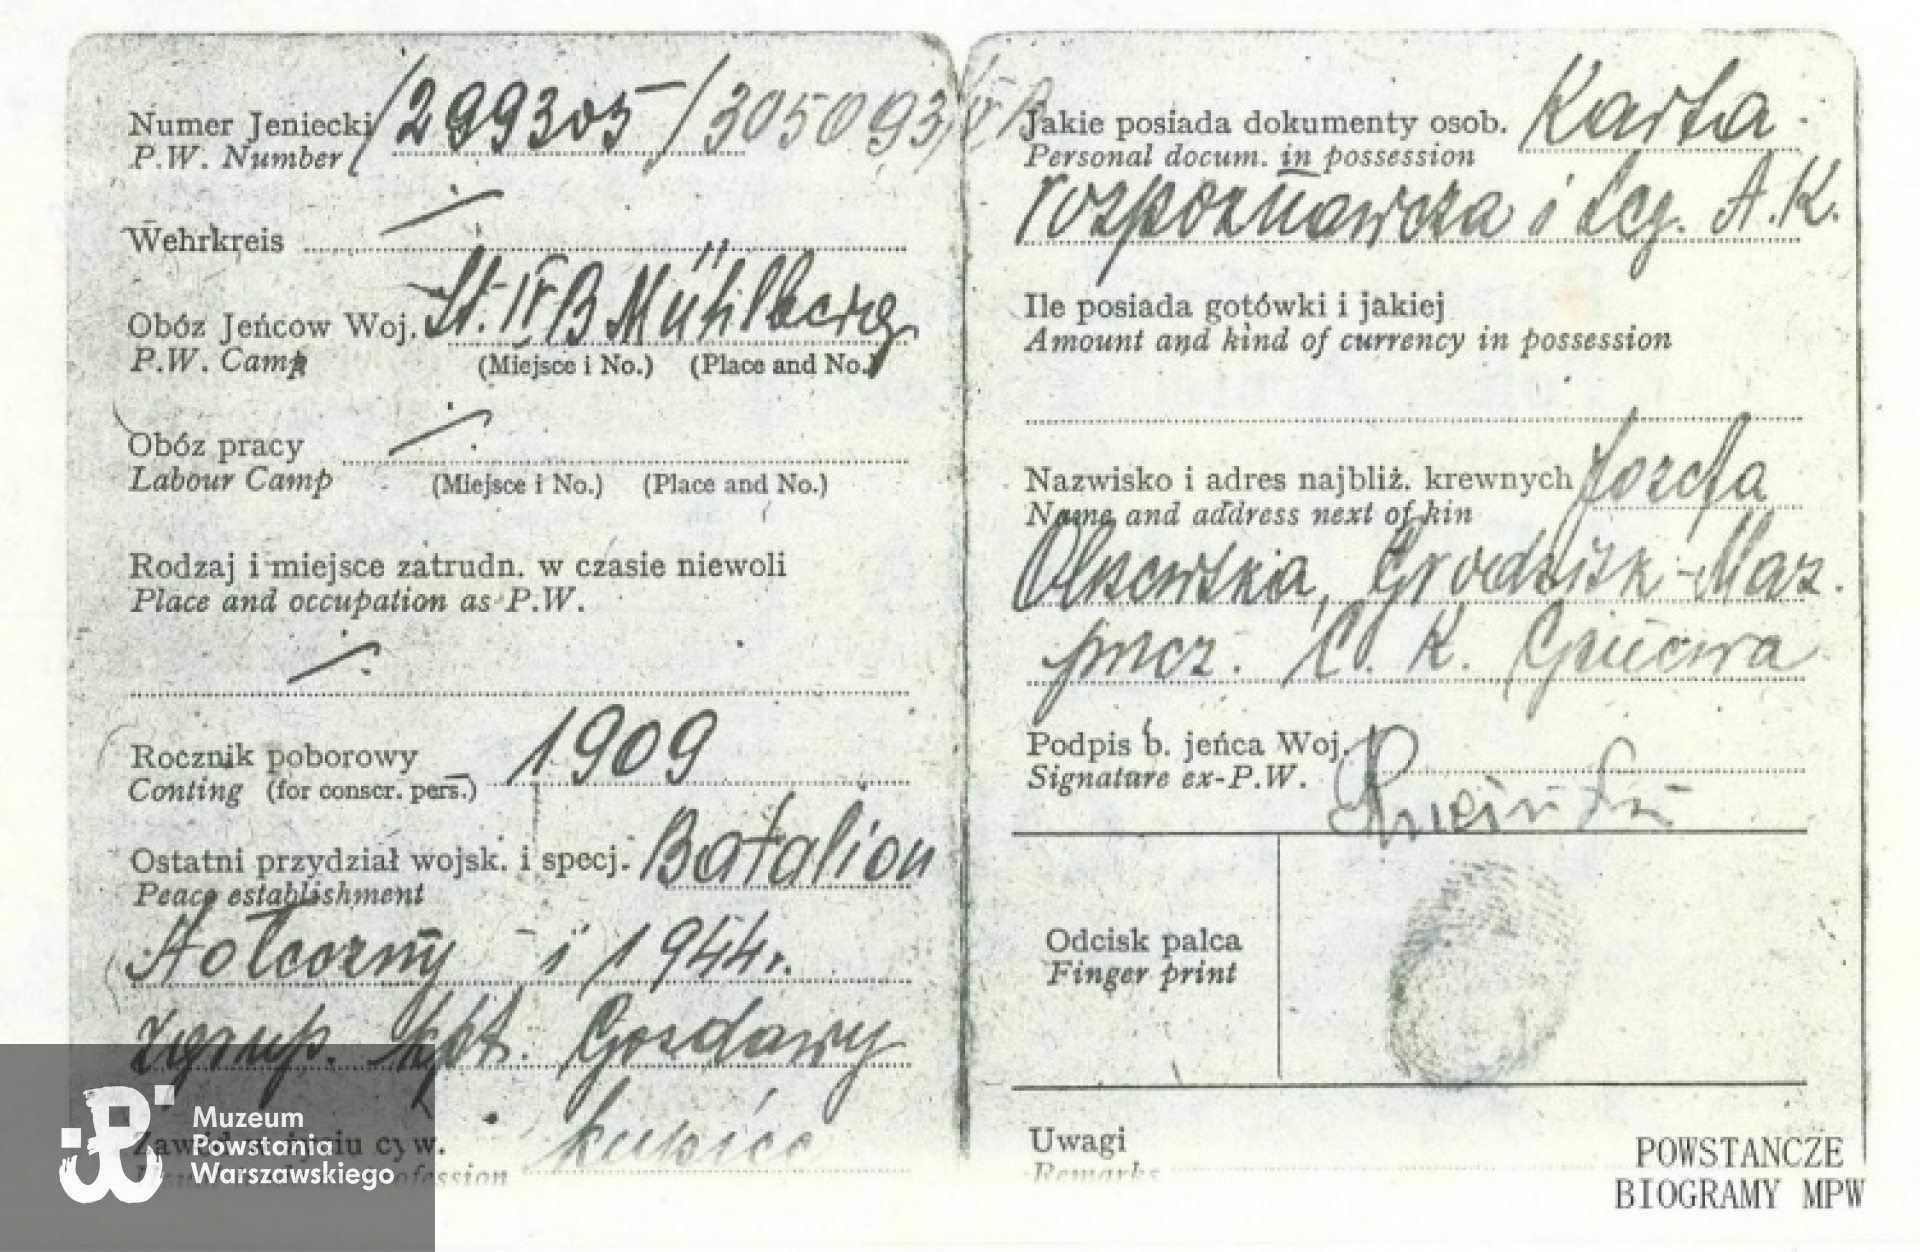 Numer Jeniecki /299305/305093/IV B
P.W. Number
Wehrkreis -/.
Obóz Jeńców Woj. St. IV B Mühlberg
P.W. Camp (Miejsce i No.) (Place and No.)
Obóz pracy -/.
Labour Camp (Miejsce i No.) (Place and No.)
Rodzaj i miejsce zatrudn. w czasie niewoli
Place and occupation as P.W.
-/.
Rocznik poborowy 1909
Conting (for conscr. pers.)
Ostatni przydział wojsk. i specj. Batalion
Peace establishment
Stołeczny i 1944r.
zgrup. kpt. Gozdawy
Zawód w życiu cyw. kupiec
Jakie posiada dokumenty osob. Karta
Personal docum. in possession
rozpoznawcza i Leg. A.K.
Ile posiada gotówki i jakiej
Amount and kind of currency in possession
Nazwisko i adres najbliż. krewnych Józefa
Name and address next of kin
Olszewska, Grodzisk-Maz.
przez. C. K.
Podpis b. jeńca Woj.
Signature ex-P.W.
Odcisk palca
Finger print
Uwagi
Remarks
Muzeum
Powstania
Warszawskiego
POWSTAŃCZE
BIOGRAMY MPW